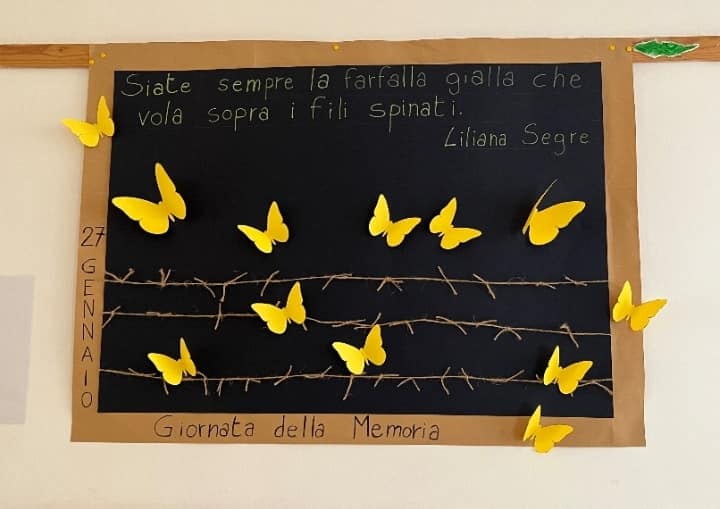 Siate sempre la farfalla gialla che
vola sopra i fili spinati.
Liliana Segre
27
GENNAIO
Giornata della Memoria